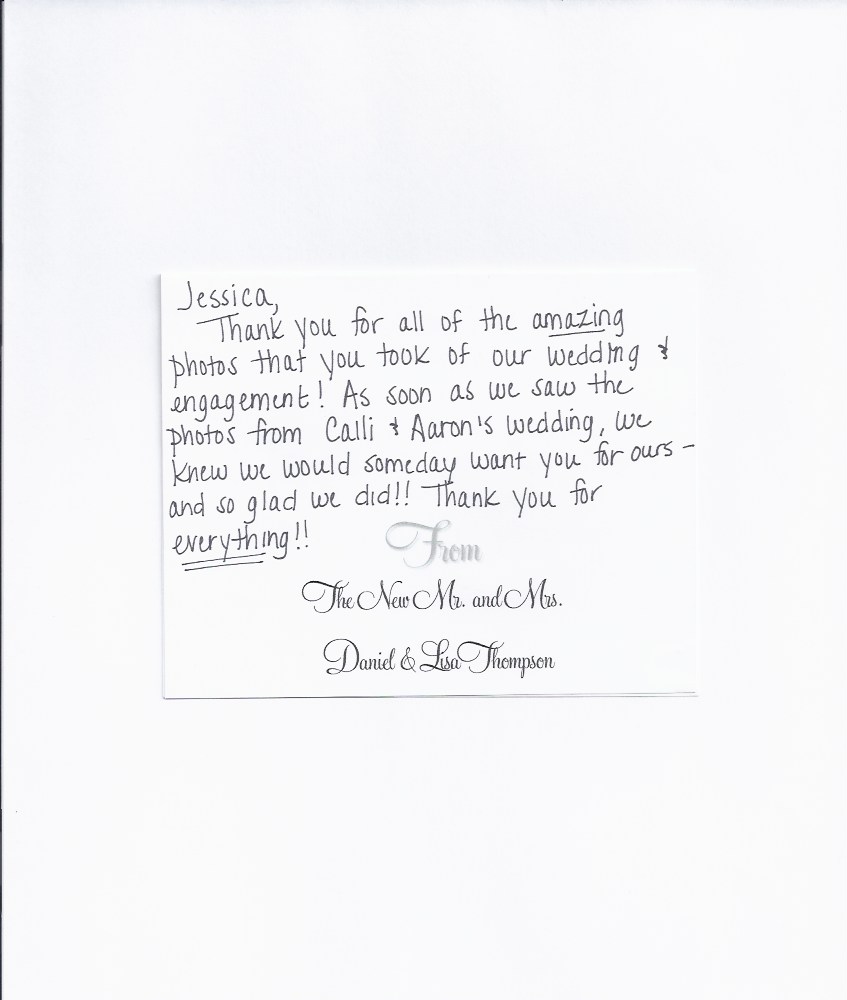 Jessica,
Thank you for all of the amazing
photos that you took of our wedding &
engagement! As soon as we saw the
photos from Calli & Aaron's wedding, we
knew we would someday want you for ours -
and so glad we did!! Thank you for
everything!!
From
The New Mr. and Mrs.
Daniel & Lisa Thompson